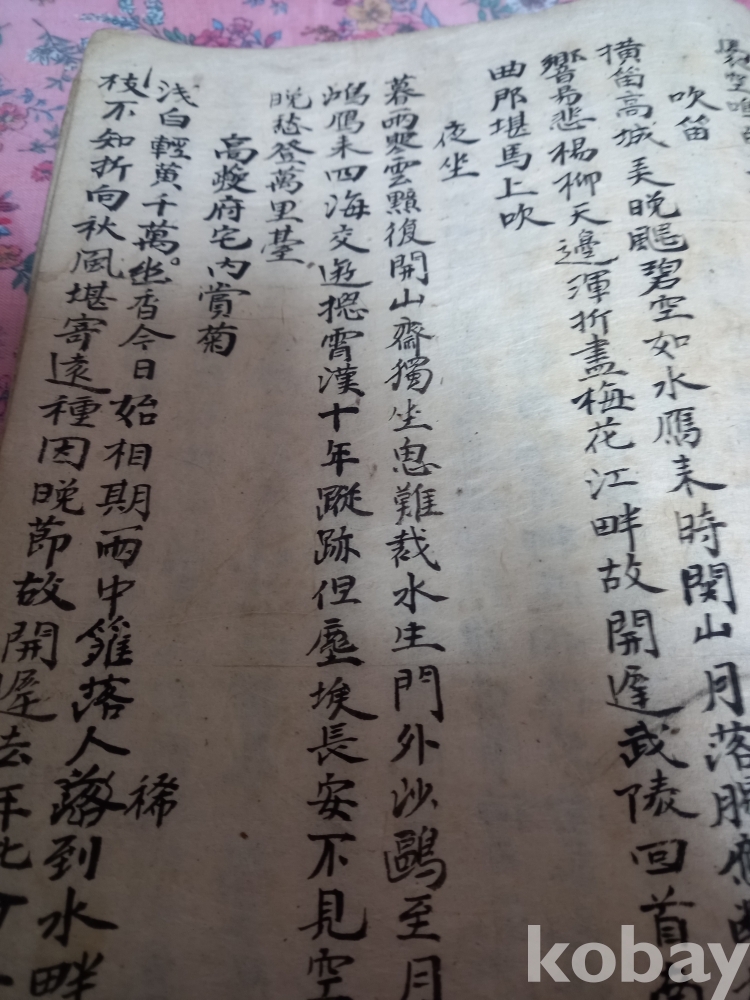 吹笛
橫笛高城美晚颸碧空如水鴈来時関山月落
響易悲楊柳天邊渾折盡梅花江畔故開遲武陵回首
曲那堪馬上吹
夜坐
暮雨寒雲黯復開山齋獨坐思難裁水生門外沙鷗至月
鴻鴈来四海交遊摠霄漢十年蹤跡但塵埃長安不見空
晩愁登萬里臺
高 府宅内賞菊
浅白輕黄千萬 香今日始相期雨中雖落人
稀
到水畔
枝不知折向秋風堪寄遠種因晚節故開遲去年
kobay